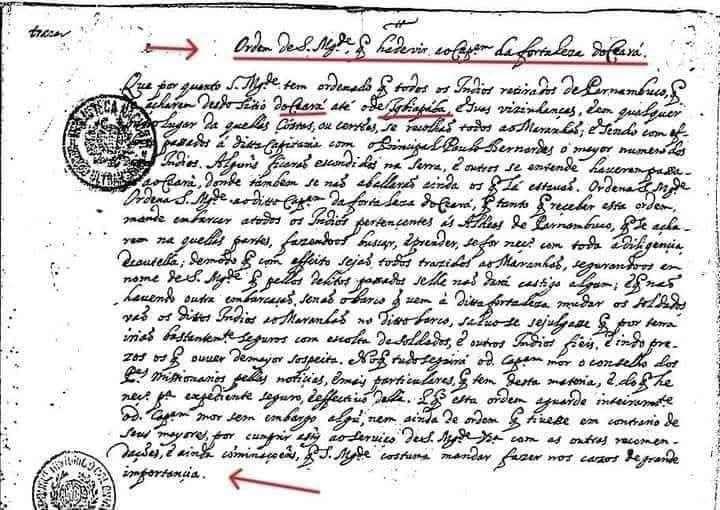 Ordem de S. Mg.de q̃ hade vir ao Cap.am da fortaleza do Ceará.
Que por quanto S. Mg.de tem ordenado q̃ todos os Indios retirados de Pernambuco, q̃
acharem desdo Sitio do Ceará até o de Ibiapaba, e suas vizinhenças, e em qualquer
lugar da quellas Costas, ou certões, se recolhaõ todos ao Maranhaõ; e Sendo com ef
passados á ditta Capitania com o Principal Paulo Bernordes o mayor numero dos
Indios. Alguñs ficaraõ escondidos na Serra, e outros se entende haverem passa-
ao Ceará, donde tambem se naõ aballaraõ ainda os q̃ Lá estavaõ. Ordena S. Mg.de
Ordena S. Mg.de ao ditto Cap.am da fortaleza do Ceará, q̃ tanto q̃ receber esta ordem
mande embarcar atodos os Indios pertencentes ás Aldeas de Pernambuco, q̃ se acha-
rem na quellas partes, fazendoos buscar, e prender, se for nec.o com toda a diligencia
e cautella, demodo q̃ com effeito sejaõ todos trazidos ao Maranhaõ, segurandoos em
nome de S. Mg.de q̃ pellos delitos passados selle naõ dará castigo algum; E q̃ naõ
havendo outra embarcaçaõ, senaõ o barco q̃ vem á ditta fortaleza mudar os soldados
vaõ os dittos Indios ao Maranhaõ no ditto barco, salvo se sejulgasse q̃ por terra
iriaõ bastantem.te seguros com escolta de soldados, e outros Indios fieis, e indo pre-
zos os q̃ ouver demayor sospeita. No q̃ tudo seguirá o d. Cap.am mor o conselho dos
P.es Missionarios pellas noticias, e mais particulares, q̃ tem desta materia, e do q̃ he
nec.o p.a expediente seguro, e effectivo della. E q̃ esta ordem aguarde inteiram.te
o d. Cap.am mor sem embargo algũ, nem ainda de ordem q̃ tivesse em contrario de
seus mayores, por cumprir assy ao serviço de S. Mg.de com as outras recomen-
daçoẽs, e ainda cominaçoẽs, q̃ S. Mg.de costuma mandar fazer nos cazos de grande
importancia.